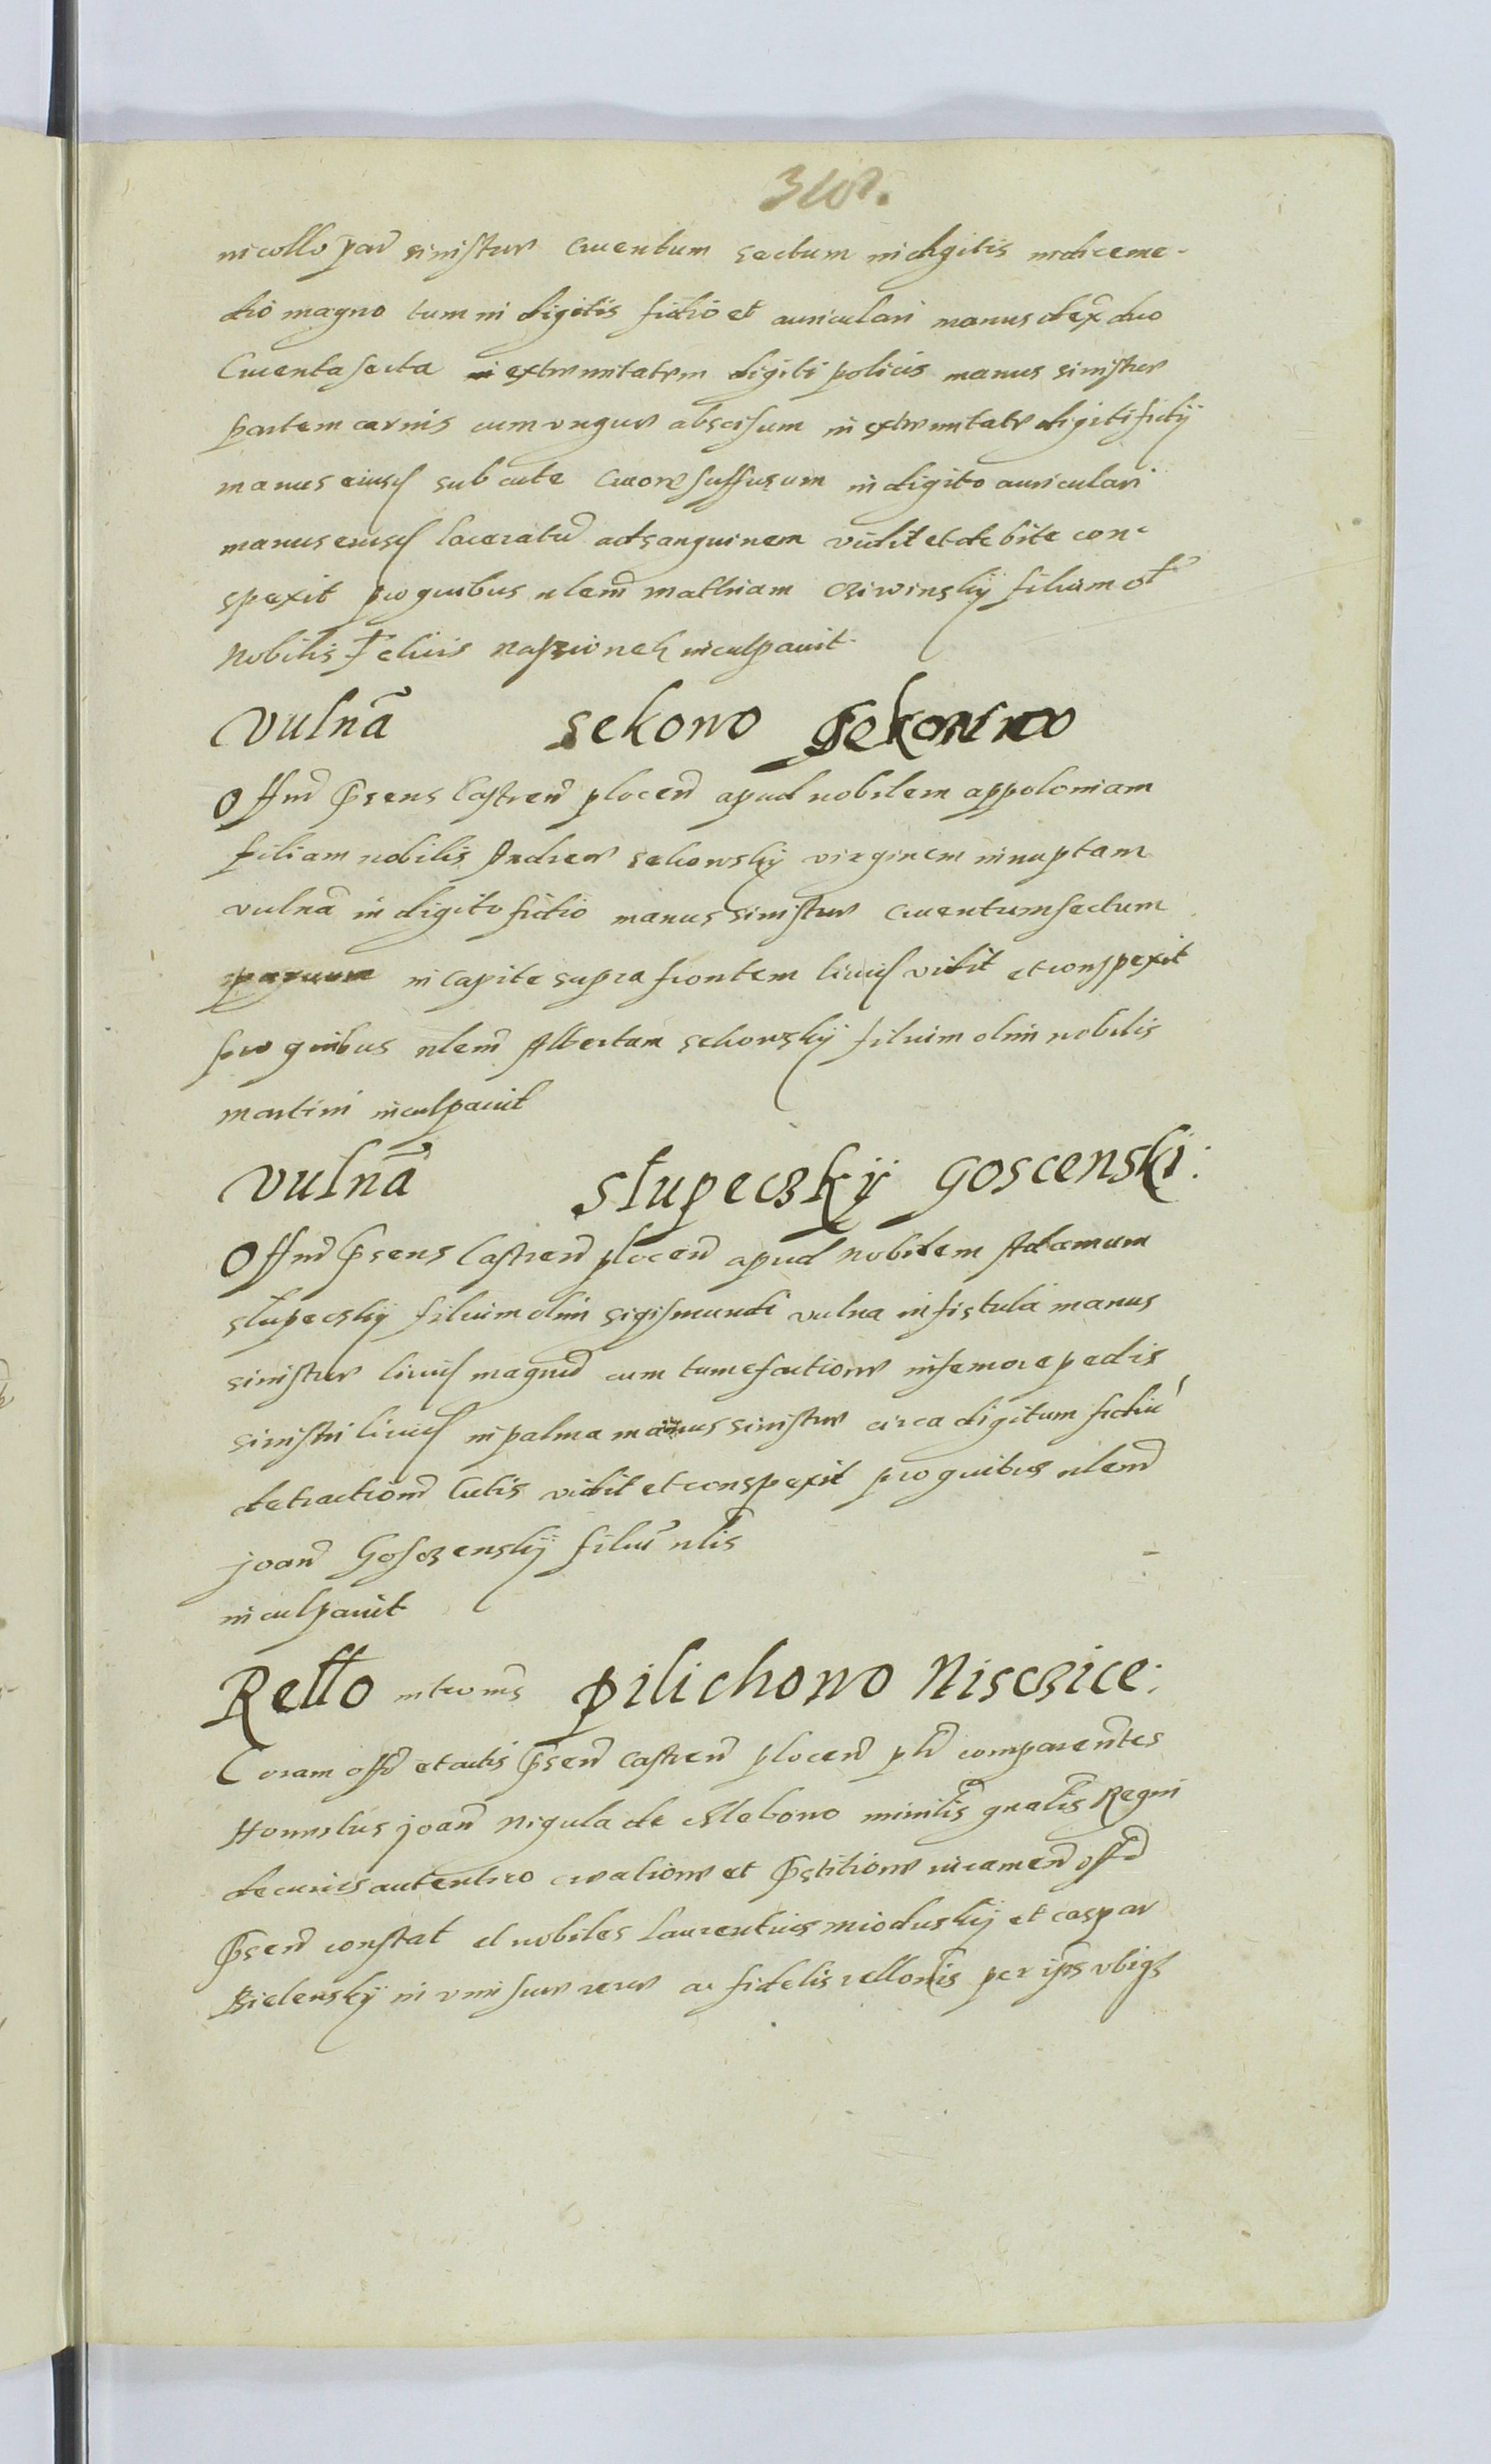 in collo par sinistre cruentum sectum in digitis indice me-
dio magno tum in digitis fictio et auriculari manus dex duo
Cruenta secta extremitatem digiti policis manus sinistre
partem carnis cum ungue abscisum in extremitate digiti fictij
manus eiusd sub cute cruore suffusum in digito auriculari
manus eiusd laceratu ad sanguinem vidit et debite con-
spexit pro quibus nlem Mathiam filium ol
Nobilis Felicis inculpavit
Vulna Sekowo Sekowo
Offm Psens Castren plocen apud nobilem appoloniam
filiam nobilis Andree Sekowsky virginem innuptam
vulna in digito fictio manus sinistre cruentum sectum
parvum in capite supra frontem livid vidit et conspexit
pro quibus nlem Albertum Sekowskij filium olim nobilis
martini inculpavit
Vulna Slupeczkij Goscenski:
Offm Psens Castren plocen apud Nobilem Adamum
slupecskij filium olim sigismundi vulna in fistula manus
sinistre livid magnu cum tumefactione in femore pedis
sinistri livid in palma manus sinistre circa digitum fictiu
detractionem Cutis vidit et conspexit pro quibus nlem
joan Goszenskij filiu nlis
inculpavit
Rello intromis Pilichowo Nisczice:
Coram offo et actis Psen Castren plocen plr comparentes
Honnestus joan Nigula de Mlebowo minilis gnalis Regni
de cuius autentico creatione et Pstitione iuramen offo
Psen constat et nobiles Laurentius mioduskij et caspar
Bielenskij in vim sue vere ac fidelis rellonis per ipsos ubiq3